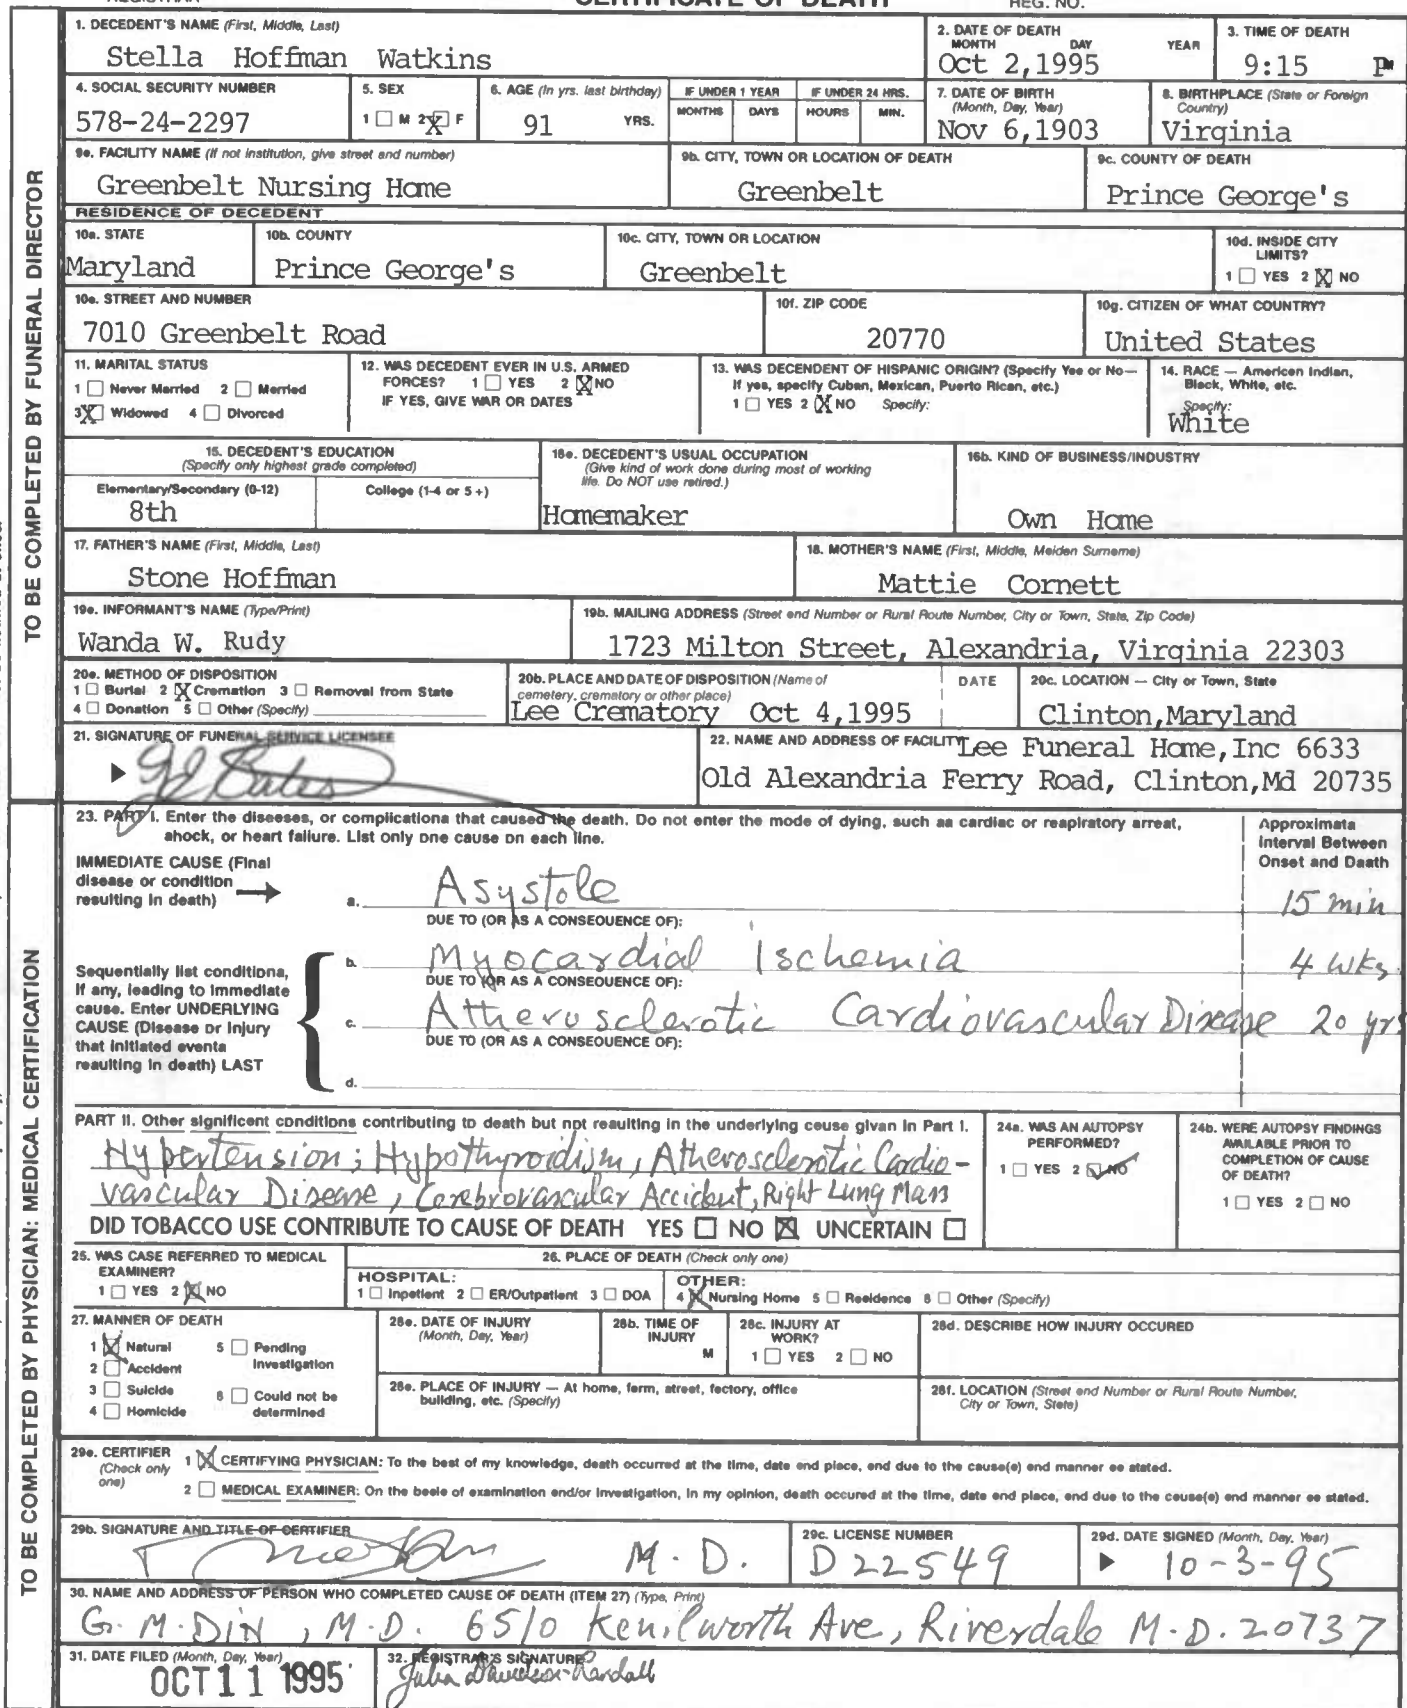 CERTIFICATE OF DEATH
REG. NO.
1. DECEDENT'S NAME (First, Middle, Last)
Stella Hoffman Watkins
2. DATE OF DEATH
MONTH DAY YEAR
Oct 2,1995
3. TIME OF DEATH
9:15 PM
4. SOCIAL SECURITY NUMBER
578-24-2297
5. SEX
1 ☐ M 2 ☒ F
6. AGE (In yrs. last birthday)
91 YRS.
IF UNDER 1 YEAR
MONTHS DAYS
IF UNDER 24 HRS.
HOURS MIN.
7. DATE OF BIRTH
(Month, Day, Year)
Nov 6,1903
8. BIRTHPLACE (State or Foreign
Country)
Virginia
9a. FACILITY NAME (If not institution, give street and number)
Greenbelt Nursing Home
9b. CITY, TOWN OR LOCATION OF DEATH
Greenbelt
9c. COUNTY OF DEATH
Prince George's
RESIDENCE OF DECEDENT
10a. STATE
Maryland
10b. COUNTY
Prince George's
10c. CITY, TOWN OR LOCATION
Greenbelt
10d. INSIDE CITY
LIMITS?
1 ☐ YES 2 ☒ NO
10e. STREET AND NUMBER
7010 Greenbelt Road
10f. ZIP CODE
20770
10g. CITIZEN OF WHAT COUNTRY?
United States
11. MARITAL STATUS
1 ☐ Never Married 2 ☐ Married
3 ☒ Widowed 4 ☐ Divorced
12. WAS DECEDENT EVER IN U.S. ARMED
FORCES? 1 ☐ YES 2 ☒ NO
IF YES, GIVE WAR OR DATES
13. WAS DECENDENT OF HISPANIC ORIGIN? (Specify Yes or No—
If yes, specify Cuban, Mexican, Puerto Rican, etc.)
1 ☐ YES 2 ☒ NO Specify:
14. RACE — American Indian,
Black, White, etc.
Specify:
White
15. DECEDENT'S EDUCATION
(Specify only highest grade completed)
Elementary/Secondary (0-12) College (1-4 or 5+)
8th
16a. DECEDENT'S USUAL OCCUPATION
(Give kind of work done during most of working
life. Do NOT use retired.)
Homemaker
16b. KIND OF BUSINESS/INDUSTRY
Own Home
17. FATHER'S NAME (First, Middle, Last)
Stone Hoffman
18. MOTHER'S NAME (First, Middle, Maiden Surname)
Mattie Cornett
19a. INFORMANT'S NAME (Type/Print)
Wanda W. Rudy
19b. MAILING ADDRESS (Street and Number or Rural Route Number, City or Town, State, Zip Code)
1723 Milton Street, Alexandria, Virginia 22303
20a. METHOD OF DISPOSITION
1 ☐ Burial 2 ☒ Cremation 3 ☐ Removal from State
4 ☐ Donation 5 ☐ Other (Specify)
20b. PLACE AND DATE OF DISPOSITION (Name of
cemetery, crematory or other place)
DATE
Lee Crematory Oct 4,1995
20c. LOCATION — City or Town, State
Clinton,Maryland
21. SIGNATURE OF FUNERAL SERVICE LICENSEE
22. NAME AND ADDRESS OF FACILITY Lee Funeral Home,Inc 6633
Old Alexandria Ferry Road, Clinton,Md 20735
TO BE COMPLETED BY FUNERAL DIRECTOR
23. PART I. Enter the diseases, or complications that caused the death. Do not enter the mode of dying, such as cardiac or respiratory arrest,
shock, or heart failure. List only one cause on each line.
Approximate
Interval Between
Onset and Death
IMMEDIATE CAUSE (Final
disease or condition
resulting in death)
a. Asystole 15 min
DUE TO (OR AS A CONSEQUENCE OF):
b. Myocardial Ischemia 4 wks
DUE TO (OR AS A CONSEQUENCE OF):
Sequentially list conditions,
if any, leading to immediate
cause. Enter UNDERLYING
CAUSE (Disease or injury
that initiated events
resulting in death) LAST
c. Atherosclerotic Cardiovascular Disease 20 yrs
DUE TO (OR AS A CONSEQUENCE OF):
d.
PART II. Other significant conditions contributing to death but not resulting in the underlying cause given in Part I.
Hypertension; Hypothyroidism, Atherosclerotic Cardio-
vascular Disease, Cerebrovascular Accident, Right Lung Mass
DID TOBACCO USE CONTRIBUTE TO CAUSE OF DEATH YES ☐ NO ☒ UNCERTAIN ☐
24a. WAS AN AUTOPSY
PERFORMED?
1 ☐ YES 2 ☑ NO
24b. WERE AUTOPSY FINDINGS
AVAILABLE PRIOR TO
COMPLETION OF CAUSE
OF DEATH?
1 ☐ YES 2 ☐ NO
25. WAS CASE REFERRED TO MEDICAL
EXAMINER?
1 ☐ YES 2 ☒ NO
26. PLACE OF DEATH (Check only one)
HOSPITAL:
1 ☐ Inpatient 2 ☐ ER/Outpatient 3 ☐ DOA
OTHER:
4 ☒ Nursing Home 5 ☐ Residence 6 ☐ Other (Specify)
27. MANNER OF DEATH
1 ☒ Natural 5 ☐ Pending
Investigation
2 ☐ Accident
3 ☐ Suicide 6 ☐ Could not be
determined
4 ☐ Homicide
28a. DATE OF INJURY
(Month, Day, Year)
28b. TIME OF
INJURY
M
28c. INJURY AT
WORK?
1 ☐ YES 2 ☐ NO
28d. DESCRIBE HOW INJURY OCCURED
28e. PLACE OF INJURY — At home, farm, street, factory, office
building, etc. (Specify)
28f. LOCATION (Street and Number or Rural Route Number,
City or Town, State)
29a. CERTIFIER
(Check only
one)
1 ☒ CERTIFYING PHYSICIAN: To the best of my knowledge, death occurred at the time, date and place, and due to the cause(s) and manner as stated.
2 ☐ MEDICAL EXAMINER: On the basis of examination and/or investigation, in my opinion, death occured at the time, date and place, and due to the cause(s) and manner as stated.
29b. SIGNATURE AND TITLE OF CERTIFIER
M.D.
29c. LICENSE NUMBER
D22549
29d. DATE SIGNED (Month, Day, Year)
10-3-95
30. NAME AND ADDRESS OF PERSON WHO COMPLETED CAUSE OF DEATH (ITEM 27) (Type, Print)
G. M. DIN, M.D. 6510 Kenilworth Ave, Riverdale M.D. 20737
31. DATE FILED (Month, Day, Year)
OCT 11 1995
32. REGISTRAR'S SIGNATURE
Julia Davidson-Randall
TO BE COMPLETED BY PHYSICIAN: MEDICAL CERTIFICATION